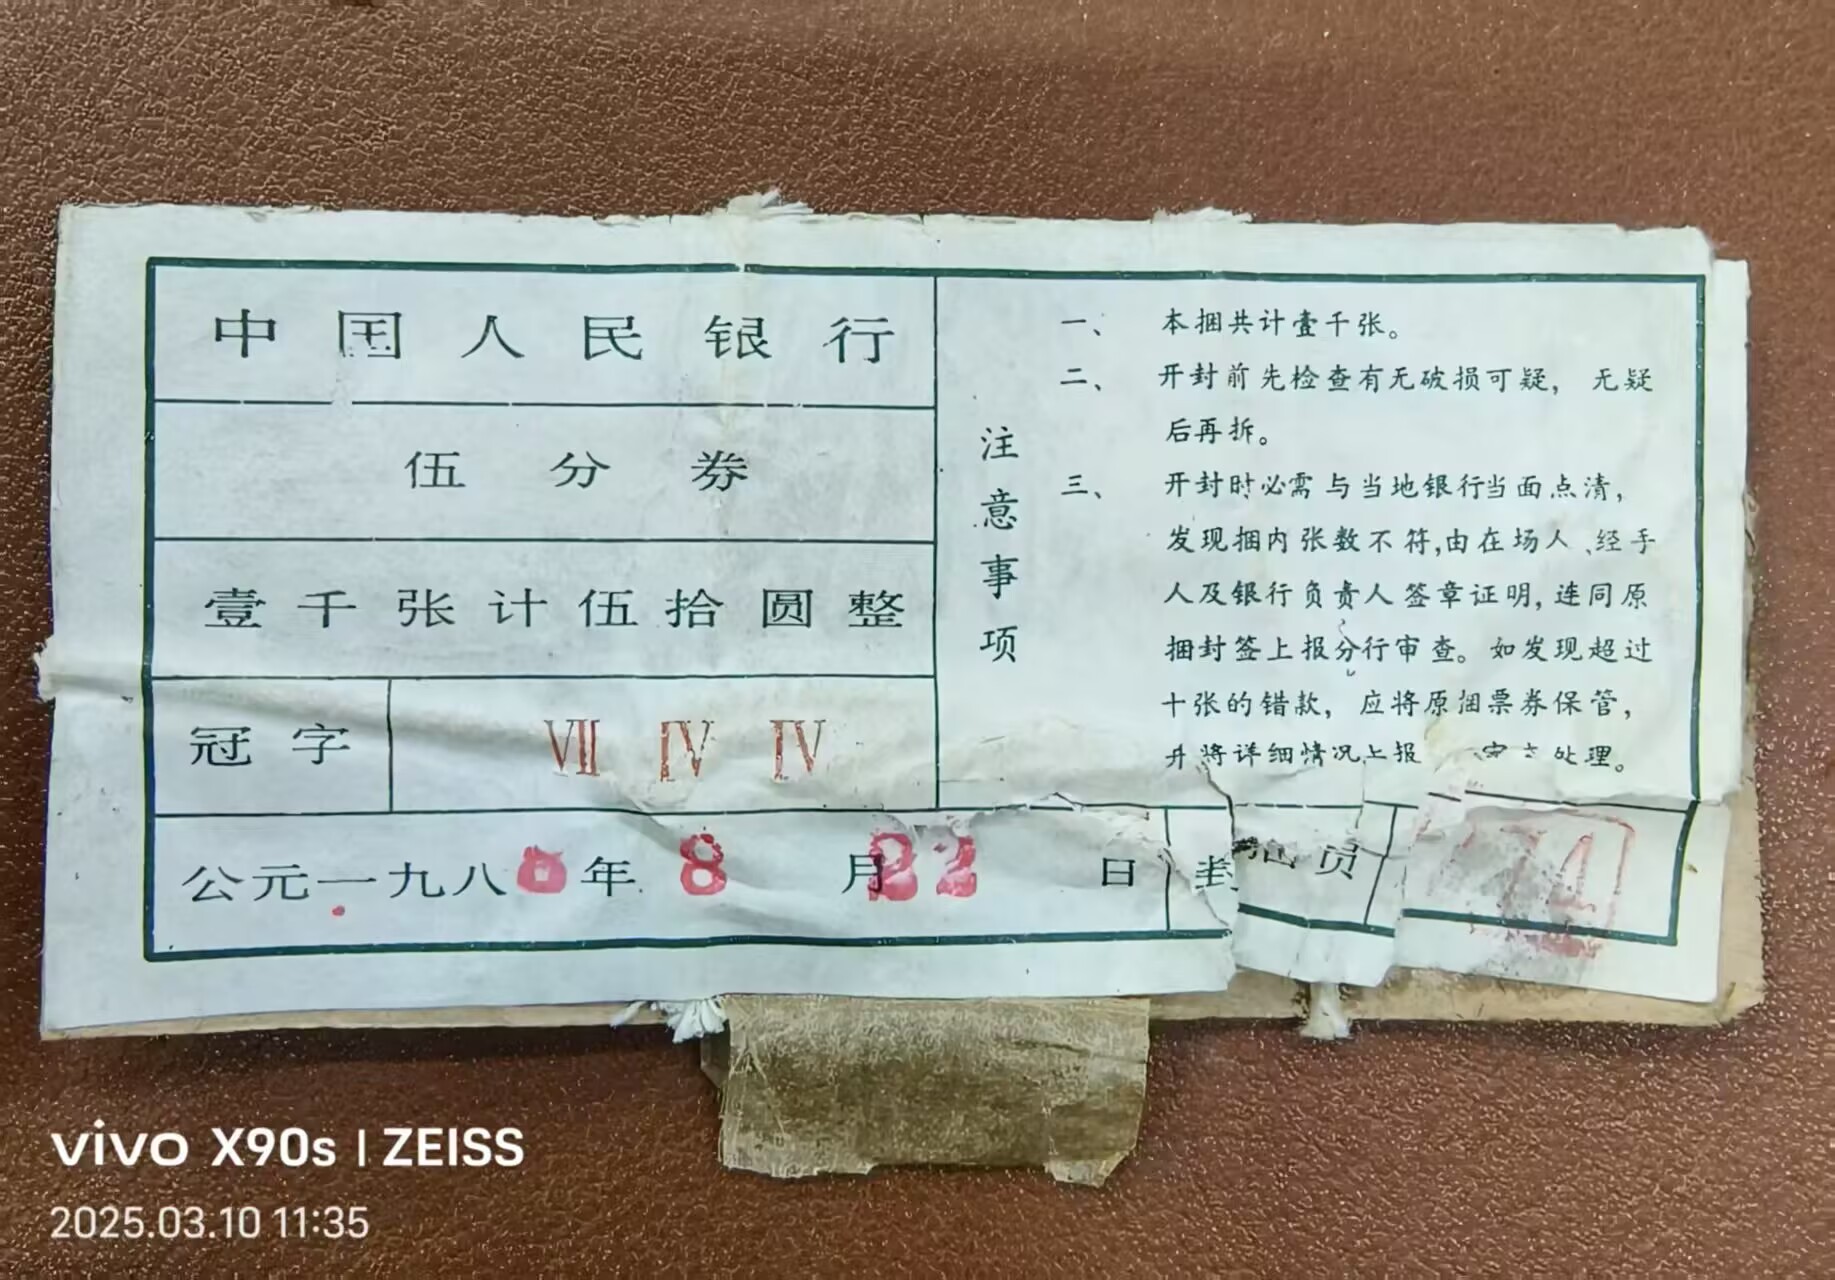 中国人民银行
伍分券
壹千张计伍拾圆整
冠字 VII IV IV
公元一九八 年 8 月 22 日 封捆员
注意事项
一、 本捆共计壹千张。
二、 开封前先检查有无破损可疑, 无疑
后再拆。
三、 开封时必需与当地银行当面点清,
发现捆内张数不符,由在场人、经手
人及银行负责人签章证明,连同原
捆封签上报分行审查。如发现超过
十张的错款, 应将原捆票券保管,
并将详细情况上报 处理。
vivo X90s | ZEISS
2025.03.10 11:35